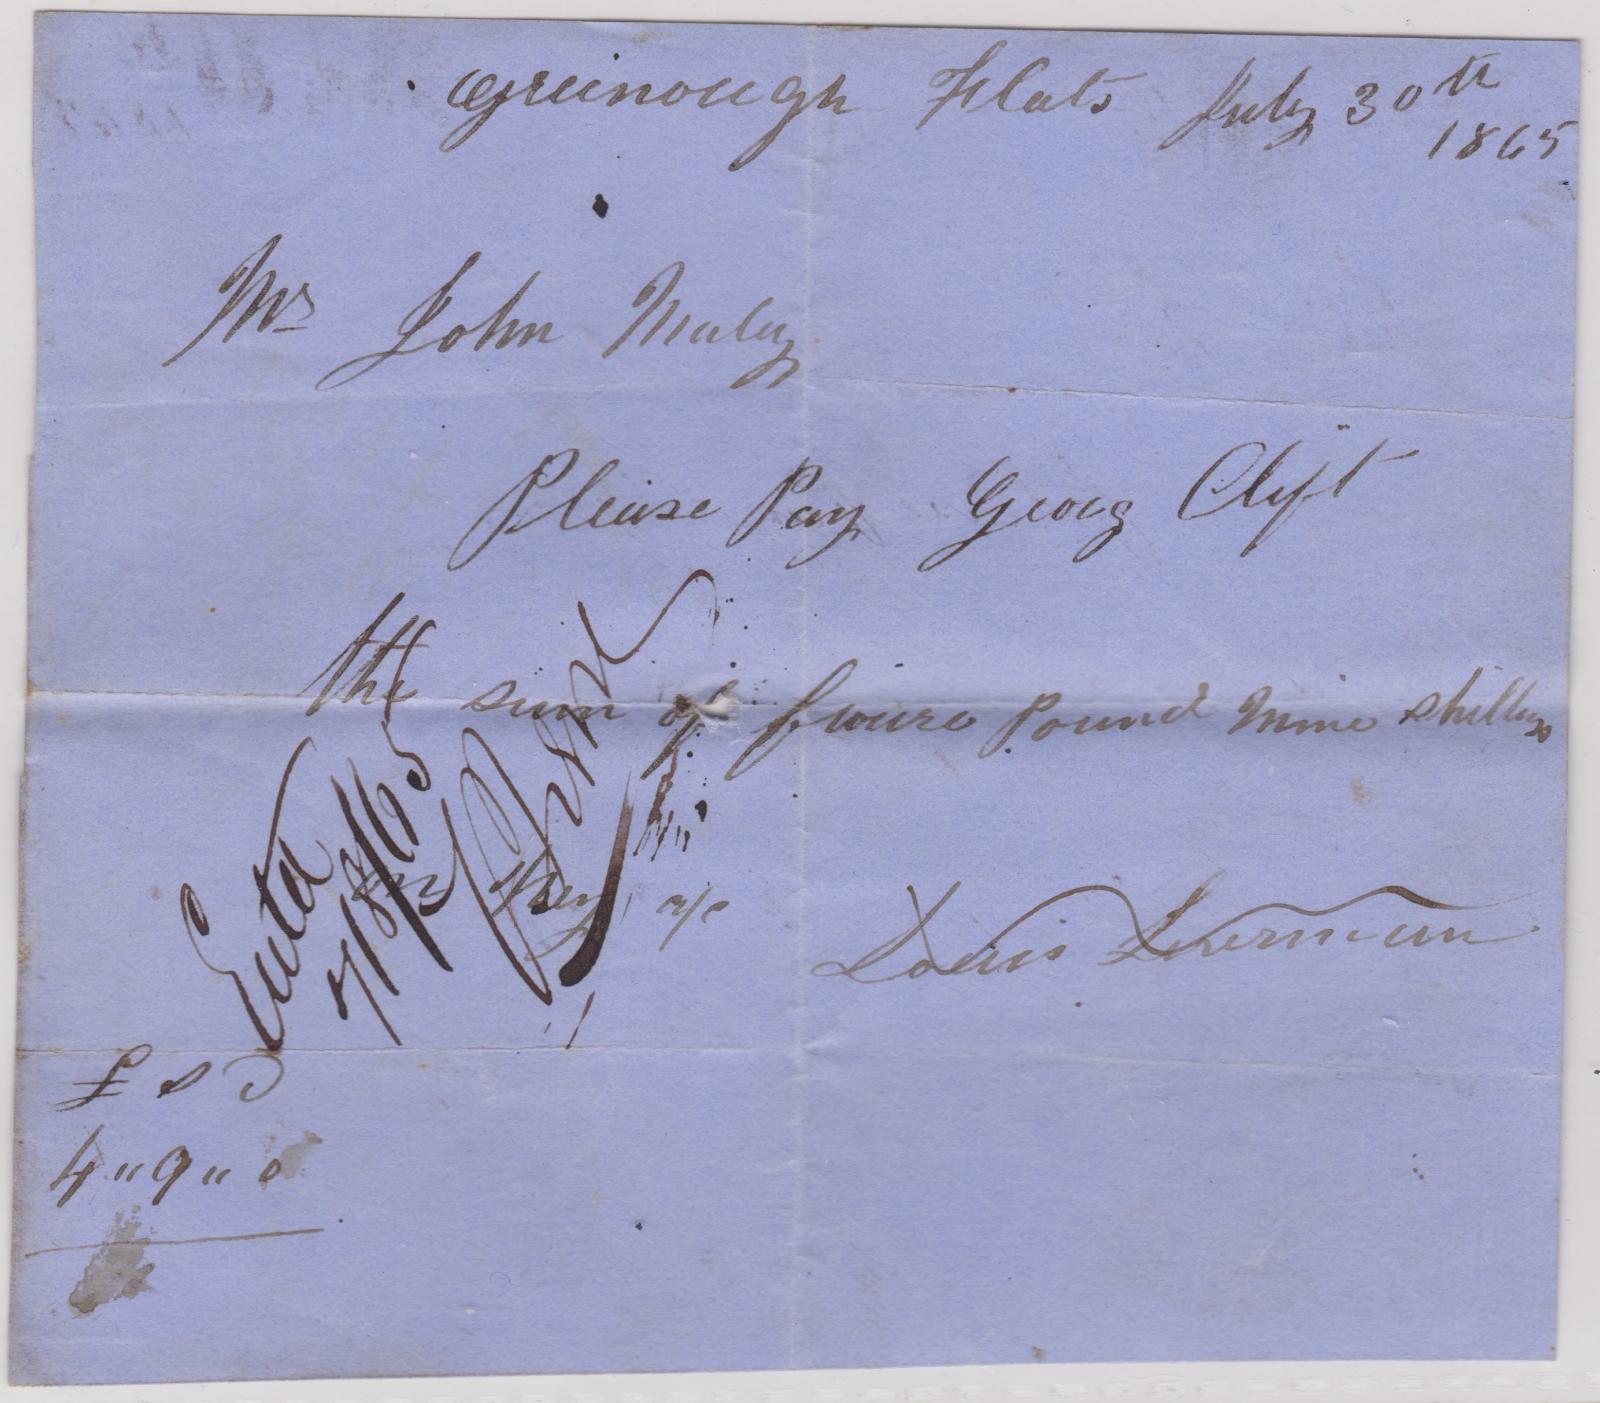 Greinough Flats July 30th
1865
Mr John Maley
Please Pay Georg Clift
the sum of foure Pound Nine Shillings
on My a/c
Louis Lherman
Entd
7/8/65
£ s d
4 " 9 " 0